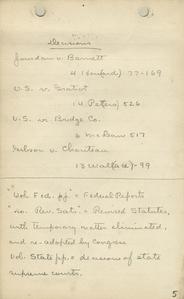 Decisions
Jourdan v. Barrett
4 (Howard) 77-169
U.S. v. Gratiot
14 (Peters) 526
U.S. v. Bridge Co.
6 McLean 517
Gibson v. Chouteau
13 Wallace) - 99
"Vol. Fed. pp." = Federal Reports
"No. Rev. Sats" = Revised Statutes,
with temporary matter eliminated,
and re-adopted by Congress
Vol. State pp. = decisions of state
supreme courts.
5